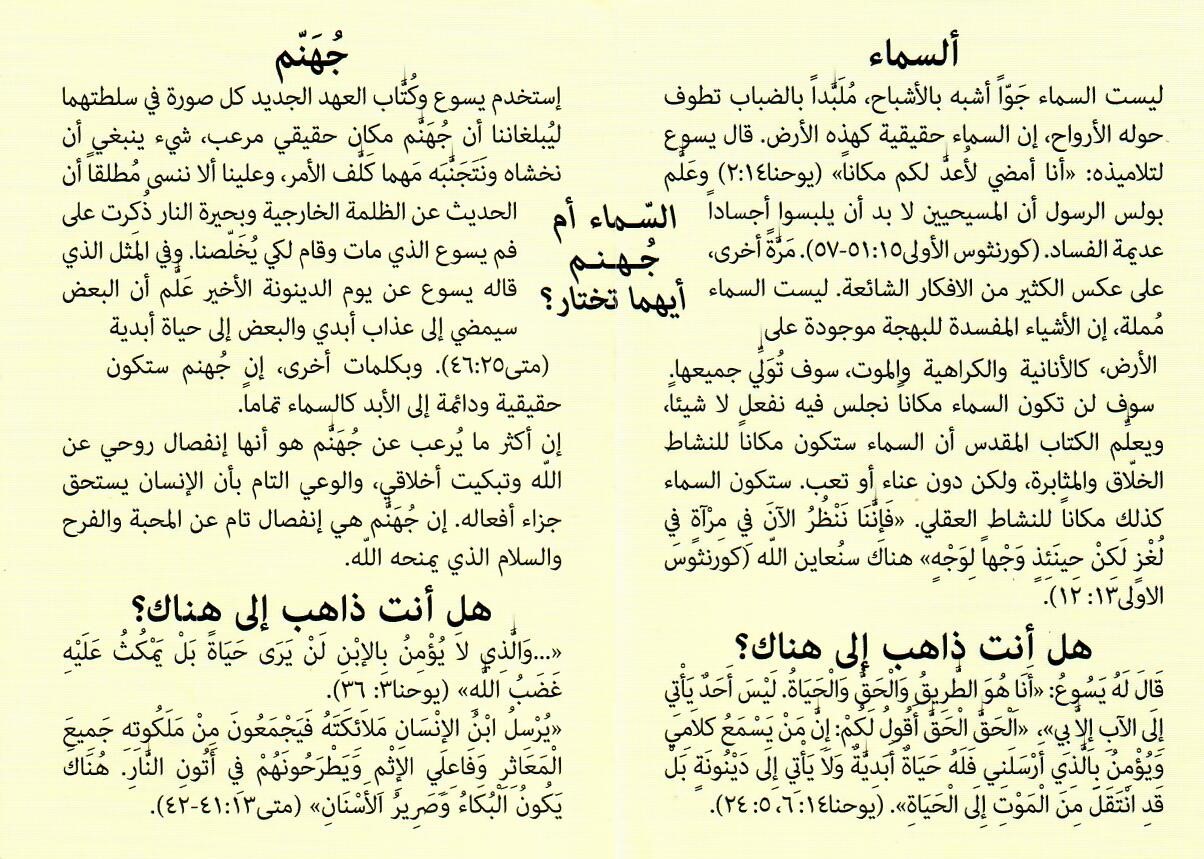 ألسماء
ليست السماء جَوّاً أشبه بالأشباح، مُلَبَّداً بالضباب تطوف
حوله الأرواح، إن السماء حقيقية كهذه الأرض. قال يسوع
لتلاميذه: «أنا أمضي لأُعدُّ لكم مكاناً» (يوحنا٢:١٤) وعَلَّم
بولس الرسول أن المسيحيين لا بد أن يلبسوا أجساداً
عديمة الفساد. (كورنثوس الأولى٥١:١٥-٥٧). مَرَّةً أخرى،
على عكس الكثير من الافكار الشائعة. ليست السماء
مُملة، إن الأشياء المفسدة للبهجة موجودة على
الأرض، كالأنانية والكراهية والموت، سوف تُوَلِّي جميعها.
سوف لن تكون السماء مكاناً نجلس فيه نفعل لا شيئا،
ويعلِّم الكتاب المقدس أن السماء ستكون مكاناً للنشاط
الخلّاق والمثابرة، ولكن دون عناء أو تعب. ستكون السماء
كذلك مكاناً للنشاط العقلي. «فَإِنَّنَا نَنْظُرُ الآنَ فِي مِرْآةٍ فِي
لُغْزٍ لَكنْ حِينَئِذٍ وَجْهاً لِوَجْهٍ» هناك سنُعاين اللّه (كورنثوس
الاولى١٣: ١٢).
هل أنت ذاهب إلى هناك؟
قَالَ لَهُ يَسُوعُ: «أَنَا هُوَ الطَّرِيقُ وَالْحَقُّ وَالْحَيَاةُ. لَيْسَ أَحَدٌ يَأْتِي
إِلَى الآبِ إِلاَّ بِي»، «اَلْحَقَّ الْحَقَّ أَقُولُ لَكُمْ: إِنَّ مَنْ يَسْمَعُ كلاَمِي
وَيُؤْمِنُ بِالَّذِي أَرْسَلَنِي فَلَهُ حَيَاةٌ أَبَدِيَّةٌ وَلاَ يَأْتِي إِلَى دَيْنُونَةٍ بَلْ
قَدِ انْتَقَلَ مِنَ الْمَوْتِ إِلَى الْحَيَاةِ». (يوحنا١٤: ٦، ٥: ٢٤).
السّماء أم
جُهنم
أيهما تختار؟
جُهَنّم
إستخدم يسوع وكُتَّاب العهد الجديد كل صورة في سلطتهما
ليُبلغاننا أن جُهَنَّم مكان حقيقي مرعب، شيء ينبغي أن
نخشاه ونَتَجَنَّبَه مَهما كَلَّف الأمر، وعلينا ألا ننسى مُطلقاً أن
الحديث عن الظلمة الخارجية وبحيرة النار ذُكِرت على
فم يسوع الذي مات وقام لكي يُخَلّصنا. وفي المَثل الذي
قاله يسوع عن يوم الدينونة الأخير عَلَّم أن البعض
سيمضي إلى عذاب أبدي والبعض إلى حياة أبدية
(متى٤٦:٢٥). وبكلمات أخرى، إن جُهنم ستكون
حقيقية ودائمة إلى الأبد كالسماء تماما.
إن أكثر ما يُرعب عن جُهَنَّم هو أنها إنفصال روحي عن
اللّه وتبكيت أخلاقي، والوعي التام بأن الإنسان يستحق
جزاء أفعاله. إن جُهَنَّم هي إنفصال تام عن المحبة والفرح
والسلام الذي يمنحه اللّه.
هل أنت ذاهب إلى هناك؟
«...وَالَّذِي لاَ يُؤْمِنُ بِالإبْنِ لَنْ يَرَى حَيَاةً بَلْ يَمْكُثُ عَلَيْهِ
غَضَبُ اللَّهِ» (يوحنا٣: ٣٦).
«يُرْسلُ ابْنُ الإِنْسَانِ مَلاَئكَتَهُ فَيَجْمَعُونَ مِنْ مَلَكُوتِهِ جَمِيعَ
الْمَعَاثِرِ وَفَاعِلِي الإِثْمِ وَيَطْرَحُونَهُمْ فِي أَتُونِ النَّارِ. هُنَاكَ
يَكُونُ الْبُكَاءُ وَصَرِيرُ الأَسْنَانِ» (متى٤١:١٣-٤٢).